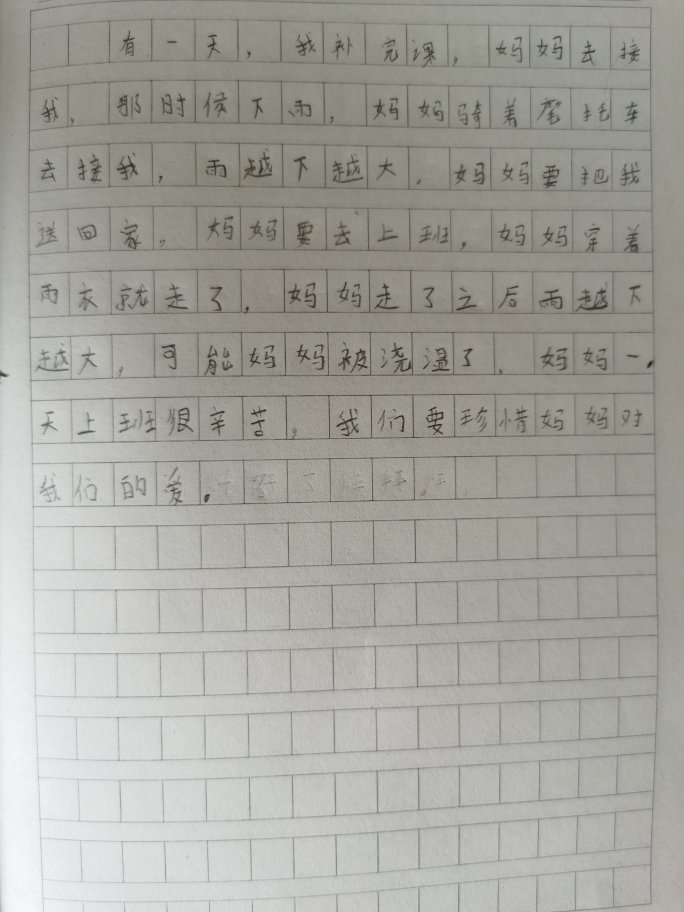 有一天，我补完课，妈妈去接
我，那时候下雨，妈妈骑着摩托车
去接我，雨越下越大。妈妈要把我
送回家，妈妈要去上班，妈妈穿着
雨衣就走了，妈妈走了之后雨越下
越大，可能妈妈被浇湿了。妈妈一
天上班很辛苦，我们要珍惜妈妈对
我们的爱。